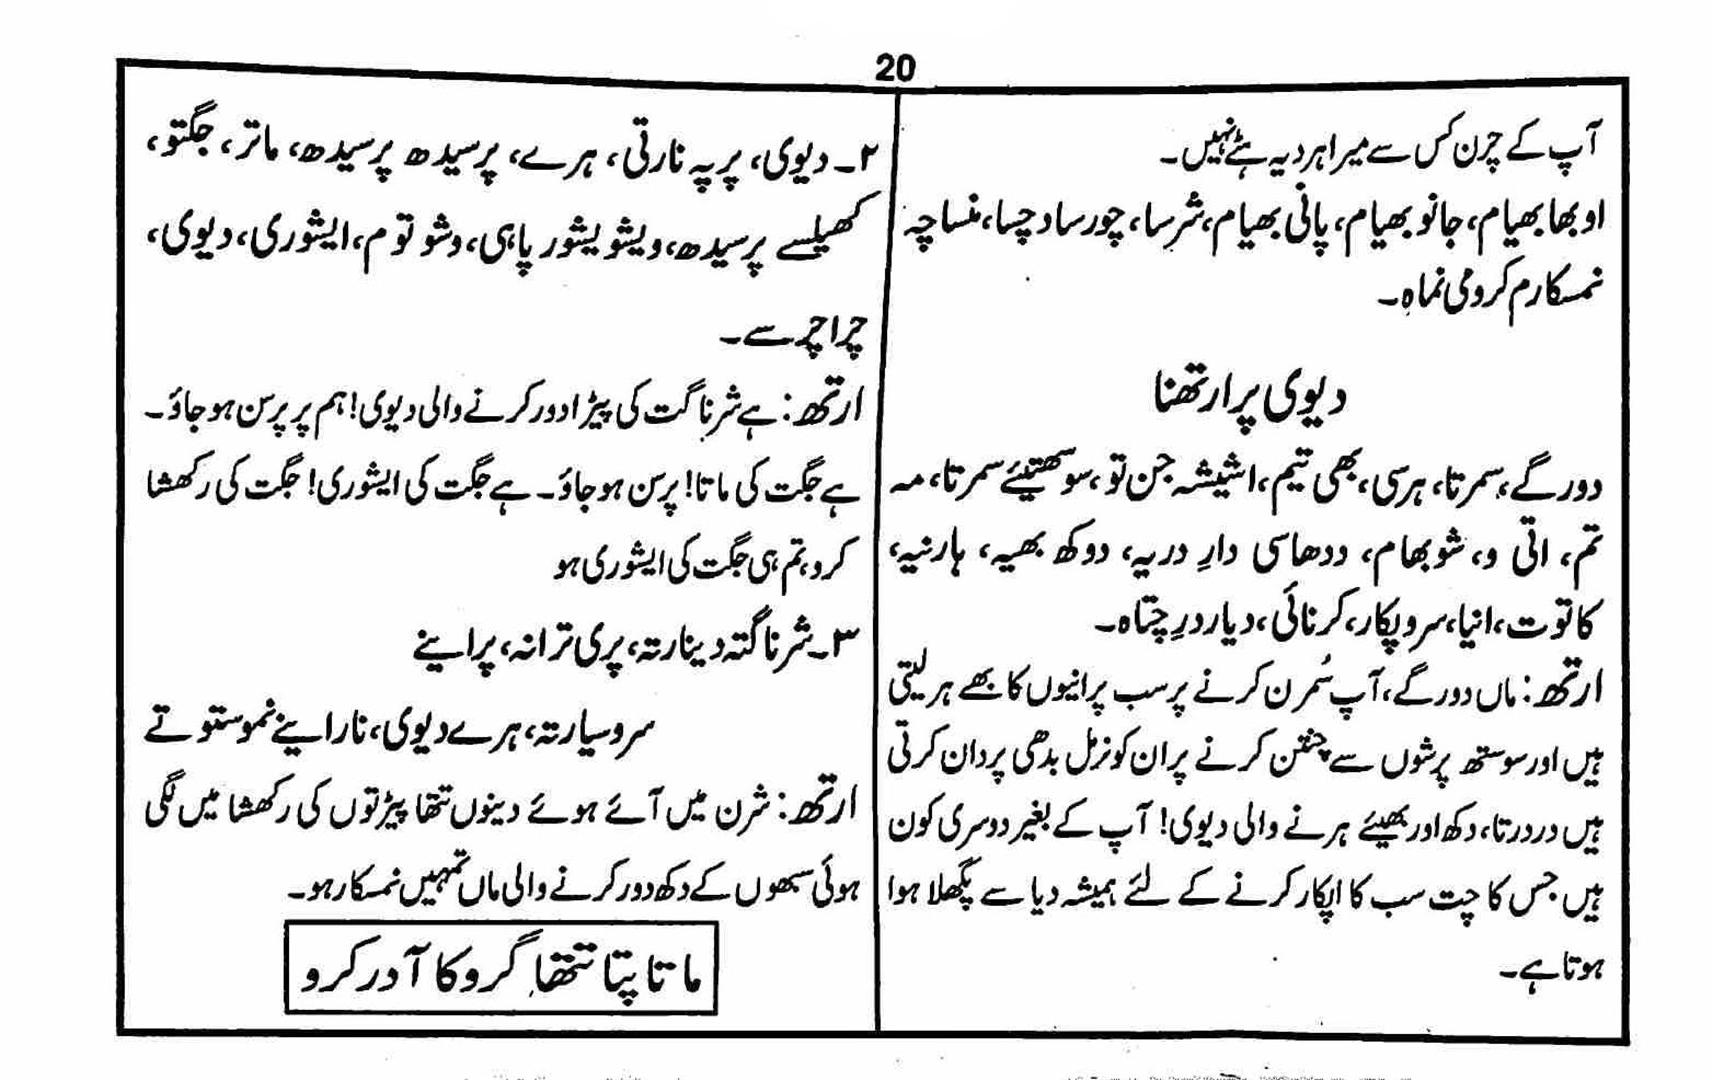 20
آپ کے چرن کس سے میرا ہردیہ ہٹے نہیں۔
اوبھا بھیام، جانو بھیام، پانی بھیام، شرسا، چورسا دچسا، منساچہ
نمسکارم کرومی نماہ۔
دیوی پرارتھنا
دورگے، سمرتا، ہرسی، بھی تیم، اشیشہ جن تو، سوستھیئے سمرتا، مہ
تم، اتی و، شوبھام، ددھاسی دارِ دریہ، دوکھ بھیہ، ہارنیہ،
کا توت، انیا، سروپکار، کرنائی، دیاردرِ چتاہ۔
ارتھ: ماں دورگے، آپ سُمرن کرنے پر سب پرانیوں کا بھے ہر لیتی
ہیں اور سوستھ پرشوں سے چنتن کرنے پر ان کو نرمل بدھی پردان کرتی
ہیں دردرتا، دکھ اور بھیئے ہرنے والی دیوی! آپ کے بغیر دوسری کون
ہیں جس کا چت سب کا اپکار کرنے کے لئے ہمیشہ دیا سے پگھلا ہوا
ہوتا ہے۔
۲۔ دیوی، پرپہ نارتی، ہرے، پرسیدھ پرسیدھ، ماتر، جگتو،
کھیلسے پرسیدھ، ویشویشور پاہی، وشو توم، ایشوری، دیوی،
چراچرسے۔
ارتھ: ہے شرناگت کی پیڑا دور کرنے والی دیوی! ہم پر پرسن ہو جاؤ۔
ہے جگت کی ماتا! پرسن ہو جاؤ۔ ہے جگت کی ایشوری! جگت کی رکھشا
کرو، تم ہی جگت کی ایشوری ہو
۳۔ شرناگتہ دینارتہ، پری ترانہ، پراینے
سروسیارتہ، ہرے دیوی، ناراینے نموستوتے
ارتھ: شرن میں آئے ہوئے دینوں تتھا پیڑتوں کی رکھشا میں لگی
ہوئی سبھوں کے دکھ دور کرنے والی ماں تمہیں نمسکار ہو۔
ماتا پتا تتھا گرو کا آدر کرو